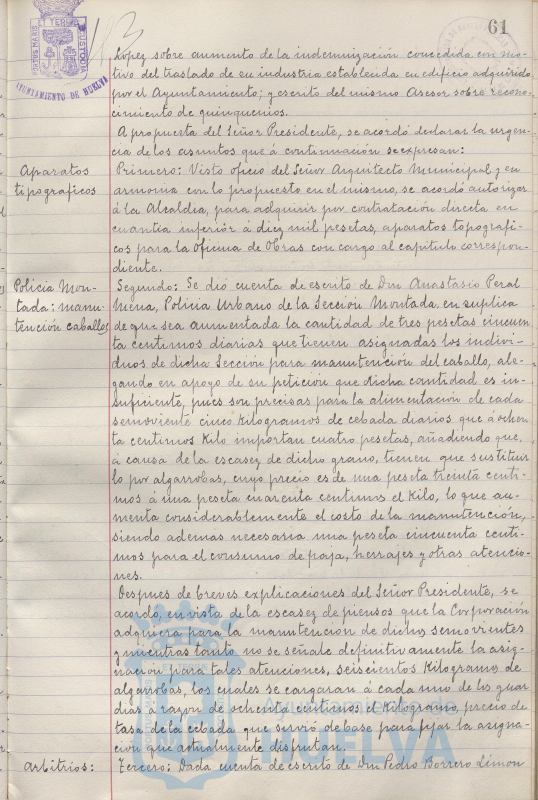 61
113
PORTUS MARIS ET TERRAE CUSTODIA
AYUNTAMIENTO DE HUELVA
López sobre aumento de la indemnización concedida con mo-
tivo del traslado de su industria establecida en edificio adquirido
por el Ayuntamiento; y escrito del mismo Asesor sobre recono-
cimiento de quinquenios.
A propuesta del Señor Presidente, se acordó declarar la urgen-
cia de los asuntos que á continuación se expresan:
Aparatos
tipograficos
Primero: Visto oficio del Señor Arquitecto Municipal y en
armonia con lo propuesto en el mismo, se acordó autorizar
á la Alcaldia, para adquirir por contratación directa en
cuantia inferior á diez mil pesetas, aparatos topografi-
cos para la Oficina de Obras con cargo al capitulo correspon-
diente.
Policia Mon-
tada: manu-
tención caballos
Segundo: Se dió cuenta de escrito de Don Anastasio Peral
Mena, Policia Urbano de la Sección Montada, en suplica
de que sea aumentada la cantidad de tres pesetas cincuen
ta centimos diarias que tienen asignadas los indivi-
duos de dicha Sección para manutención del caballo, ale-
gando en apoyo de su petición que dicha cantidad es in-
suficiente, pues son precisas para la alimentación de cada
semoviente cinco Kilogramos de cebada diarios que á ochen
ta centimos Kilo importan cuatro pesetas, añadiendo que,
á causa de la escasez de dicho grano, tienen que sustituir
lo por algarrobas, cuyo precio es de una peseta treinta centi-
mos á una peseta cuarenta centimos el Kilo, lo que au-
menta considerablemente el costo de la manutención,
siendo ademas necesaria una peseta cincuenta centi-
mos para el consumo de paja, herrajes y otras atencio-
nes.
Despues de breves explicaciones del Señor Presidente, se
acordó, en vista de la escasez de piensos que la Corporación
adquiera para la manutención de dichos semovientes
y mientras tanto no se señale definitivamente la asig-
nación para tales atenciones, seiscientos Kilogramos de
algarrobas, los cuales se cargaran á cada uno de los guar
dias á razon de ochenta centimos el Kilogramo, precio de
tasa de la cebada que sirvió de base para fijar la asigna-
cion que actualmente disfrutan.
Arbitrios:
Tercero: Dada cuenta de escrito de Don Pedro Borrero Limon
Ayuntamiento de
HUELVA